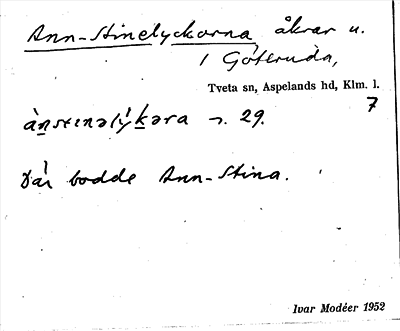 Ann-Stinelyckorna, åkrar u.
/ Göteruda,
Tveta sn, Aspelands hd, Klm. l.
7
29.
Där bodde Ann-Stina.
Ivar Modéer 1952